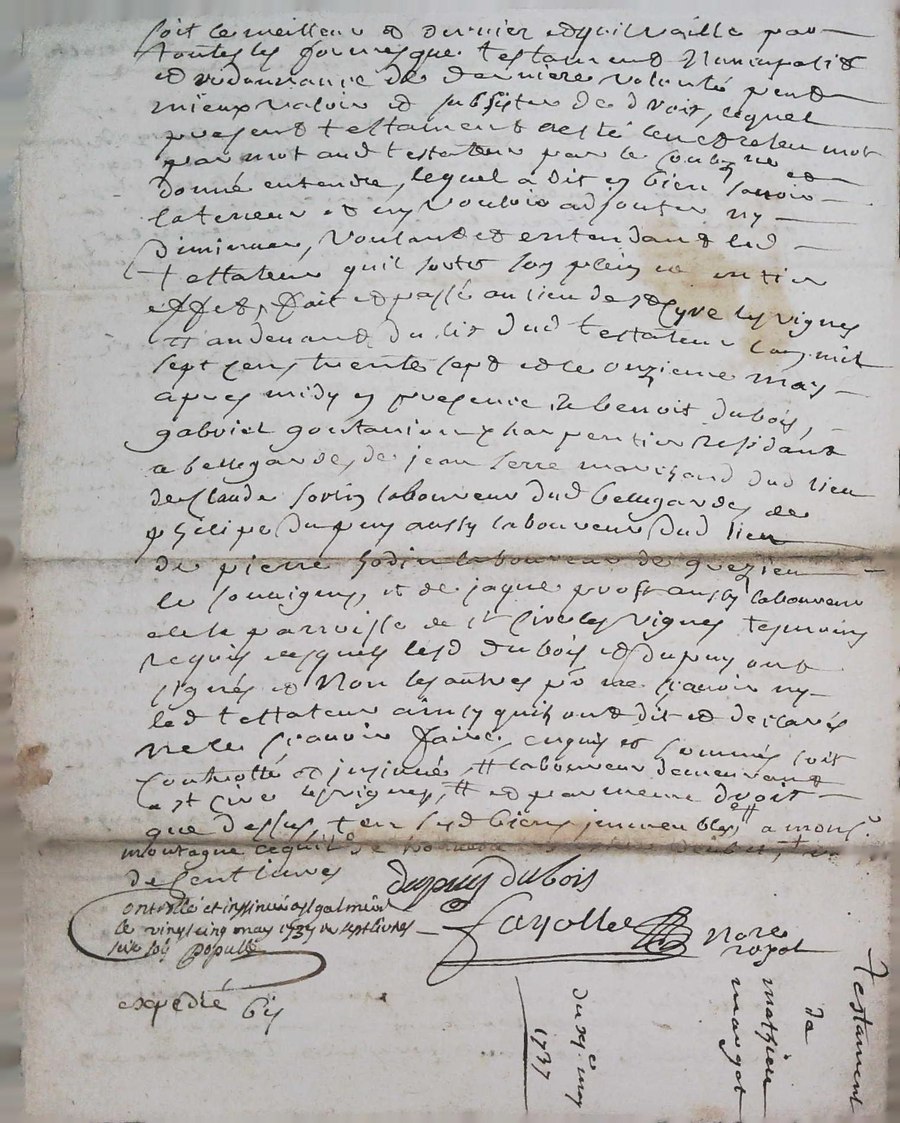 soit le meilleur et dernier et qu'il vaille par
toutes les formes que testament nuncupatif
et ordonnance de derniere volonté peut
mieux valoir et subsister de droit, lequel
present testament a esté leu et releu mot
par mot aud testateur par le soubz ne et
donné entendre, lequel a dit y bien savoir
la teneur et ny vouloir adjouter ny
diminuer, voulant et entendant led
testateur quil sorte son plein et entier
effet, fait et passé au lieu de st Cyre les vignes
au devant du lit dud testateur lan mil
sept cens trente sept et le onzieme may
apres midy en presence de benoit dubois,
gabriel goutanion charpentier residant
a bellegarde, de jean serre marchand dud lieu
de Claude sovin laboureur dud bellegarde, de
philipe dupuy aussy laboureur dud lieu
de pierre hodin laboureur de
le souvigny, et de jaque prost aussy laboureur
de la parroisse de st Cire les vignes tesmoins
requis desquels lesd dubois et dupuy ont
signés et non les autres pr ne sçavoir ny
led testateur ainsy quils ont dit et declarés
ne le sçavoir faire, enquis et sommés soit
controllé et insinué, # laboureur demeurant
a st Cire les vignes, # et par meme droit
que dessus, # sesd biens immeubles, a mons.
montagne ce quil se
de cent livres
dupuy dubois
ontrollé et insinué a st galmier
le vingt cinq may 1737 reçu sept livres
six sols Populle
fayolle nore
royal
expedié
Testament
de
mathieu
margot
du xj.e may
1737